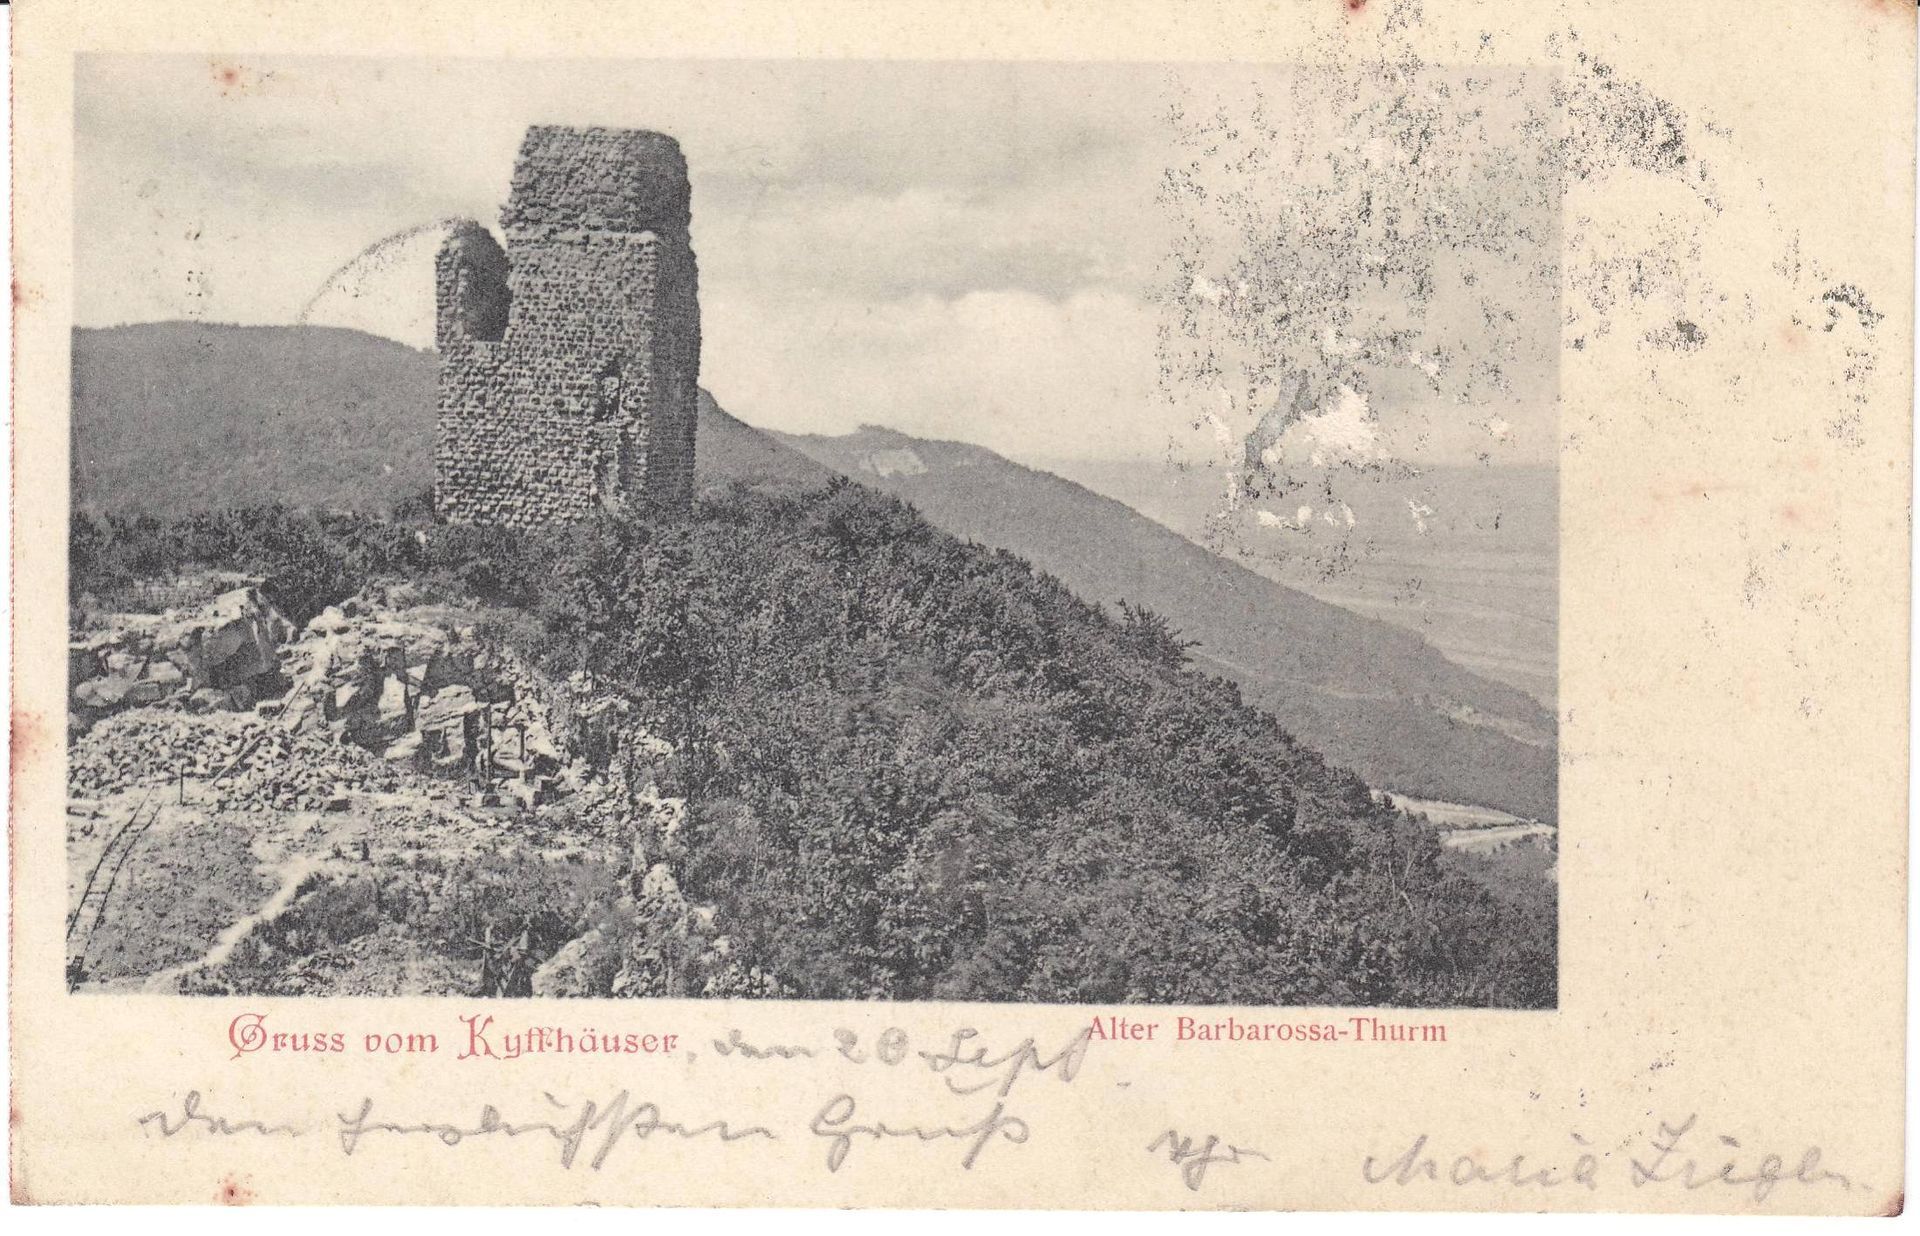 Gruss vom Kyffhäuser, den 20 Sept
Alter Barbarossa-Thurm
den herzlichsten Gruß Ihr Maria